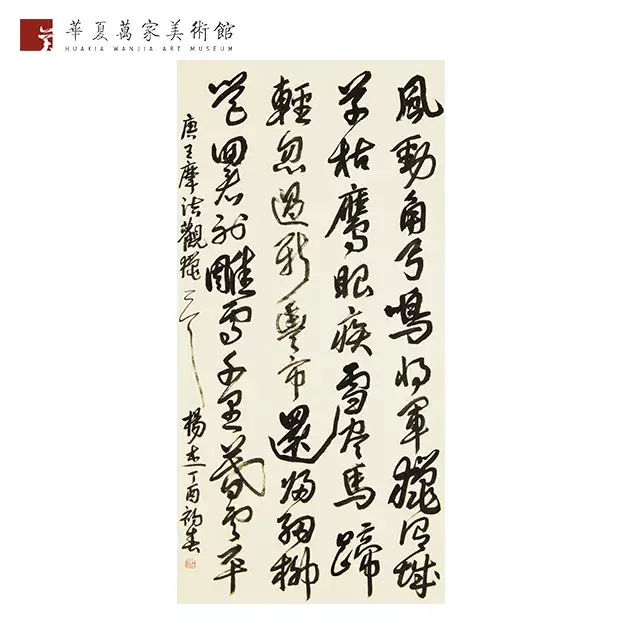 華夏萬家美術館
HUAXIA WANJIA ART MUSEUM
風勁角弓鳴将軍獵渭城
草枯鷹眼疾雪尽馬蹄
輕忽過新豐市還歸細柳
營回看射雕處千里暮雲平
唐王摩诘觀獵
楊杰丁酉初春